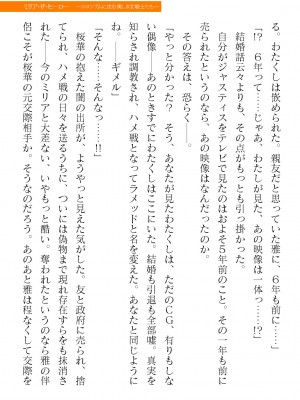 ミリア・ザ・ヒーロー
る。わたくしは嵌められた。親友だと思っていた雅に、6年も前に」
「!?　6年って……じゃあ、わたしが見た、あの映像は一体……!?」
結婚話云々よりも、その点がもっとも引っ掛かった。
自分がジャスティスをテレビで見たのはおよそ5年前のこと。その一年も前に
売られたというのなら、あの映像はなんだったのか。
その答えは、恐らく……。
『やっと分かった？　そう、あなたが見たわたくしは、ただのCG、有りもしな
い偶像。あのときすでにわたくしはここにいた。結婚も引退も全部嘘。真実を
知らされ調教され、ハメ戦となってラメッドと名を変えた。あなたと同じように
ね。……ギメル』
「そんな……そんなっ……!!」
桜華の抱えた闇の出所が、ようやっと見えた気がした。友と政府に売られ、捨
てられ、ハメ戦の日々を送るうちに、ついには偽物まで現れ存在すらをも抹消さ
れた。今のミリアと大差ない、いやもっと酷い。奪われたというのなら雅の伴
侶こそが桜華の元交際相手か。そうなのだろう。あのあと雅は程なくして交際を